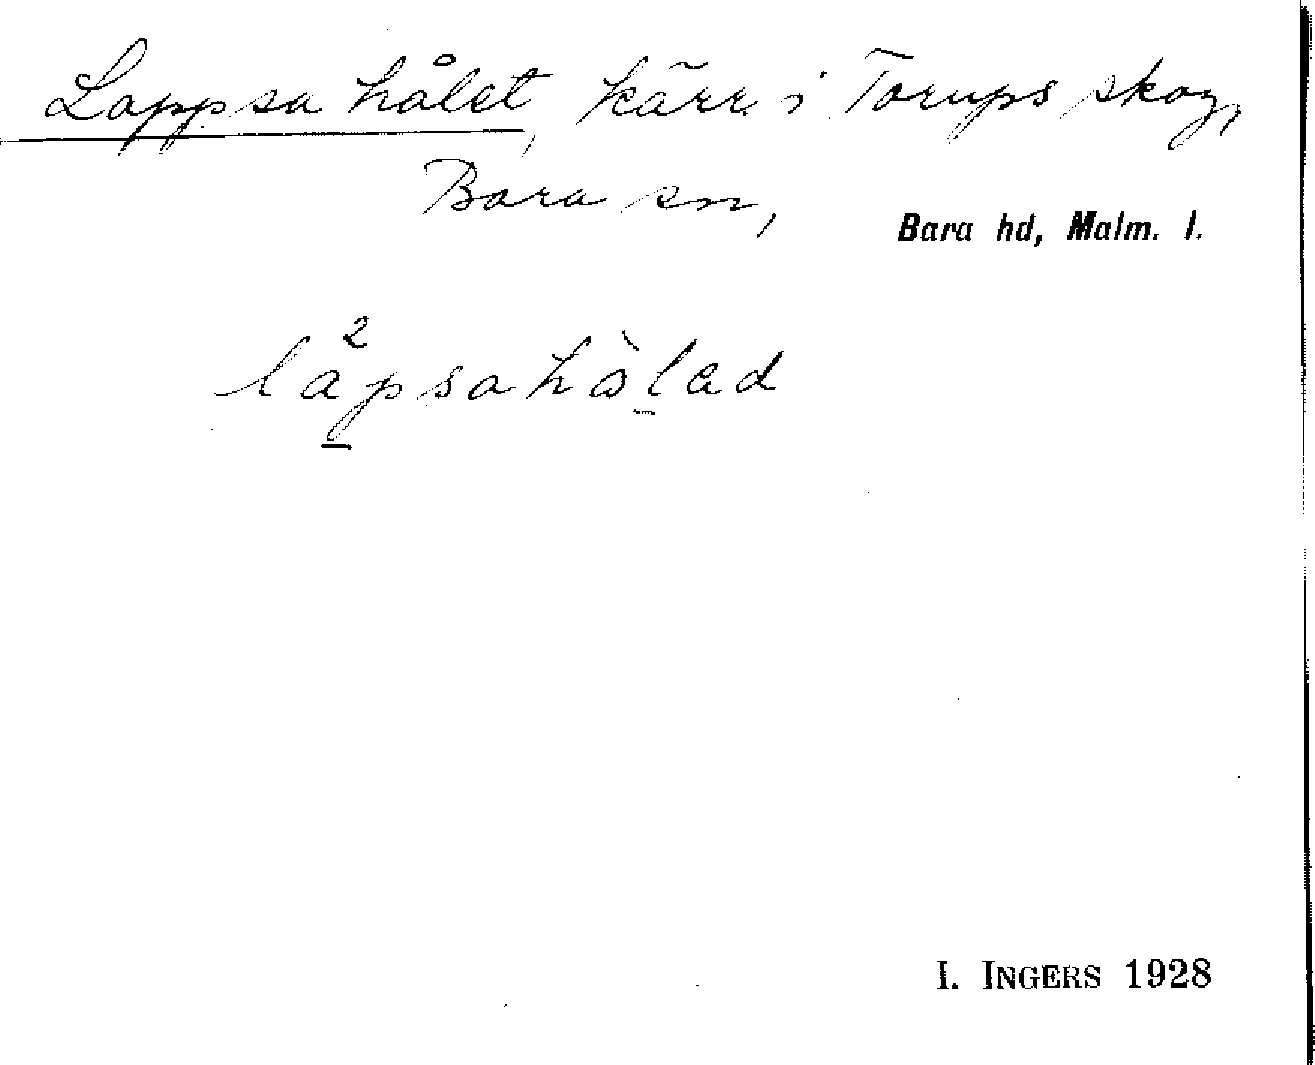 Lappsa hålet, kärr i Torups skog,
Bara sn,
Bara hd, Malm. l.
låpsahòlad
I. INGERS 1928